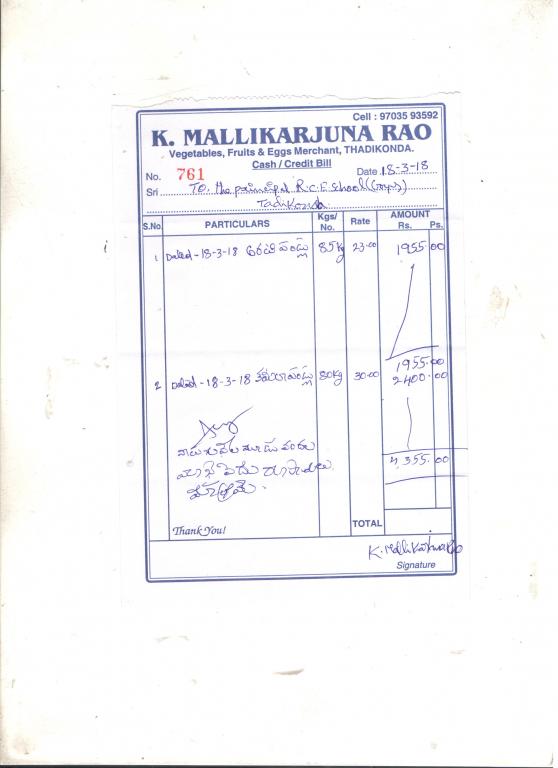 Cell : 97035 93592
K. MALLIKARJUNA RAO
Vegetables, Fruits & Eggs Merchant, THADIKONDA.
Cash / Credit Bill
No. 761 Date 18-3-18
Sri To, the principal R.C.E. School (Guys)
Tadikonda
S.No. PARTICULARS Kgs/ No. Rate AMOUNT Rs. Ps.
1 Dated - 18-3-18 అరటి పండ్లు 85kg 23-00 1955.00
1955.00
2 Dated - 18-3-18 కమలాపండ్లు 80kg 30-00 2400.00
నాలుగు వేల మూడు వందల
యాభై ఐదు రూపాయలు
మాత్రమే.
4,355.00
Thank You! TOTAL
K. Mallikarjuna Rao
Signature